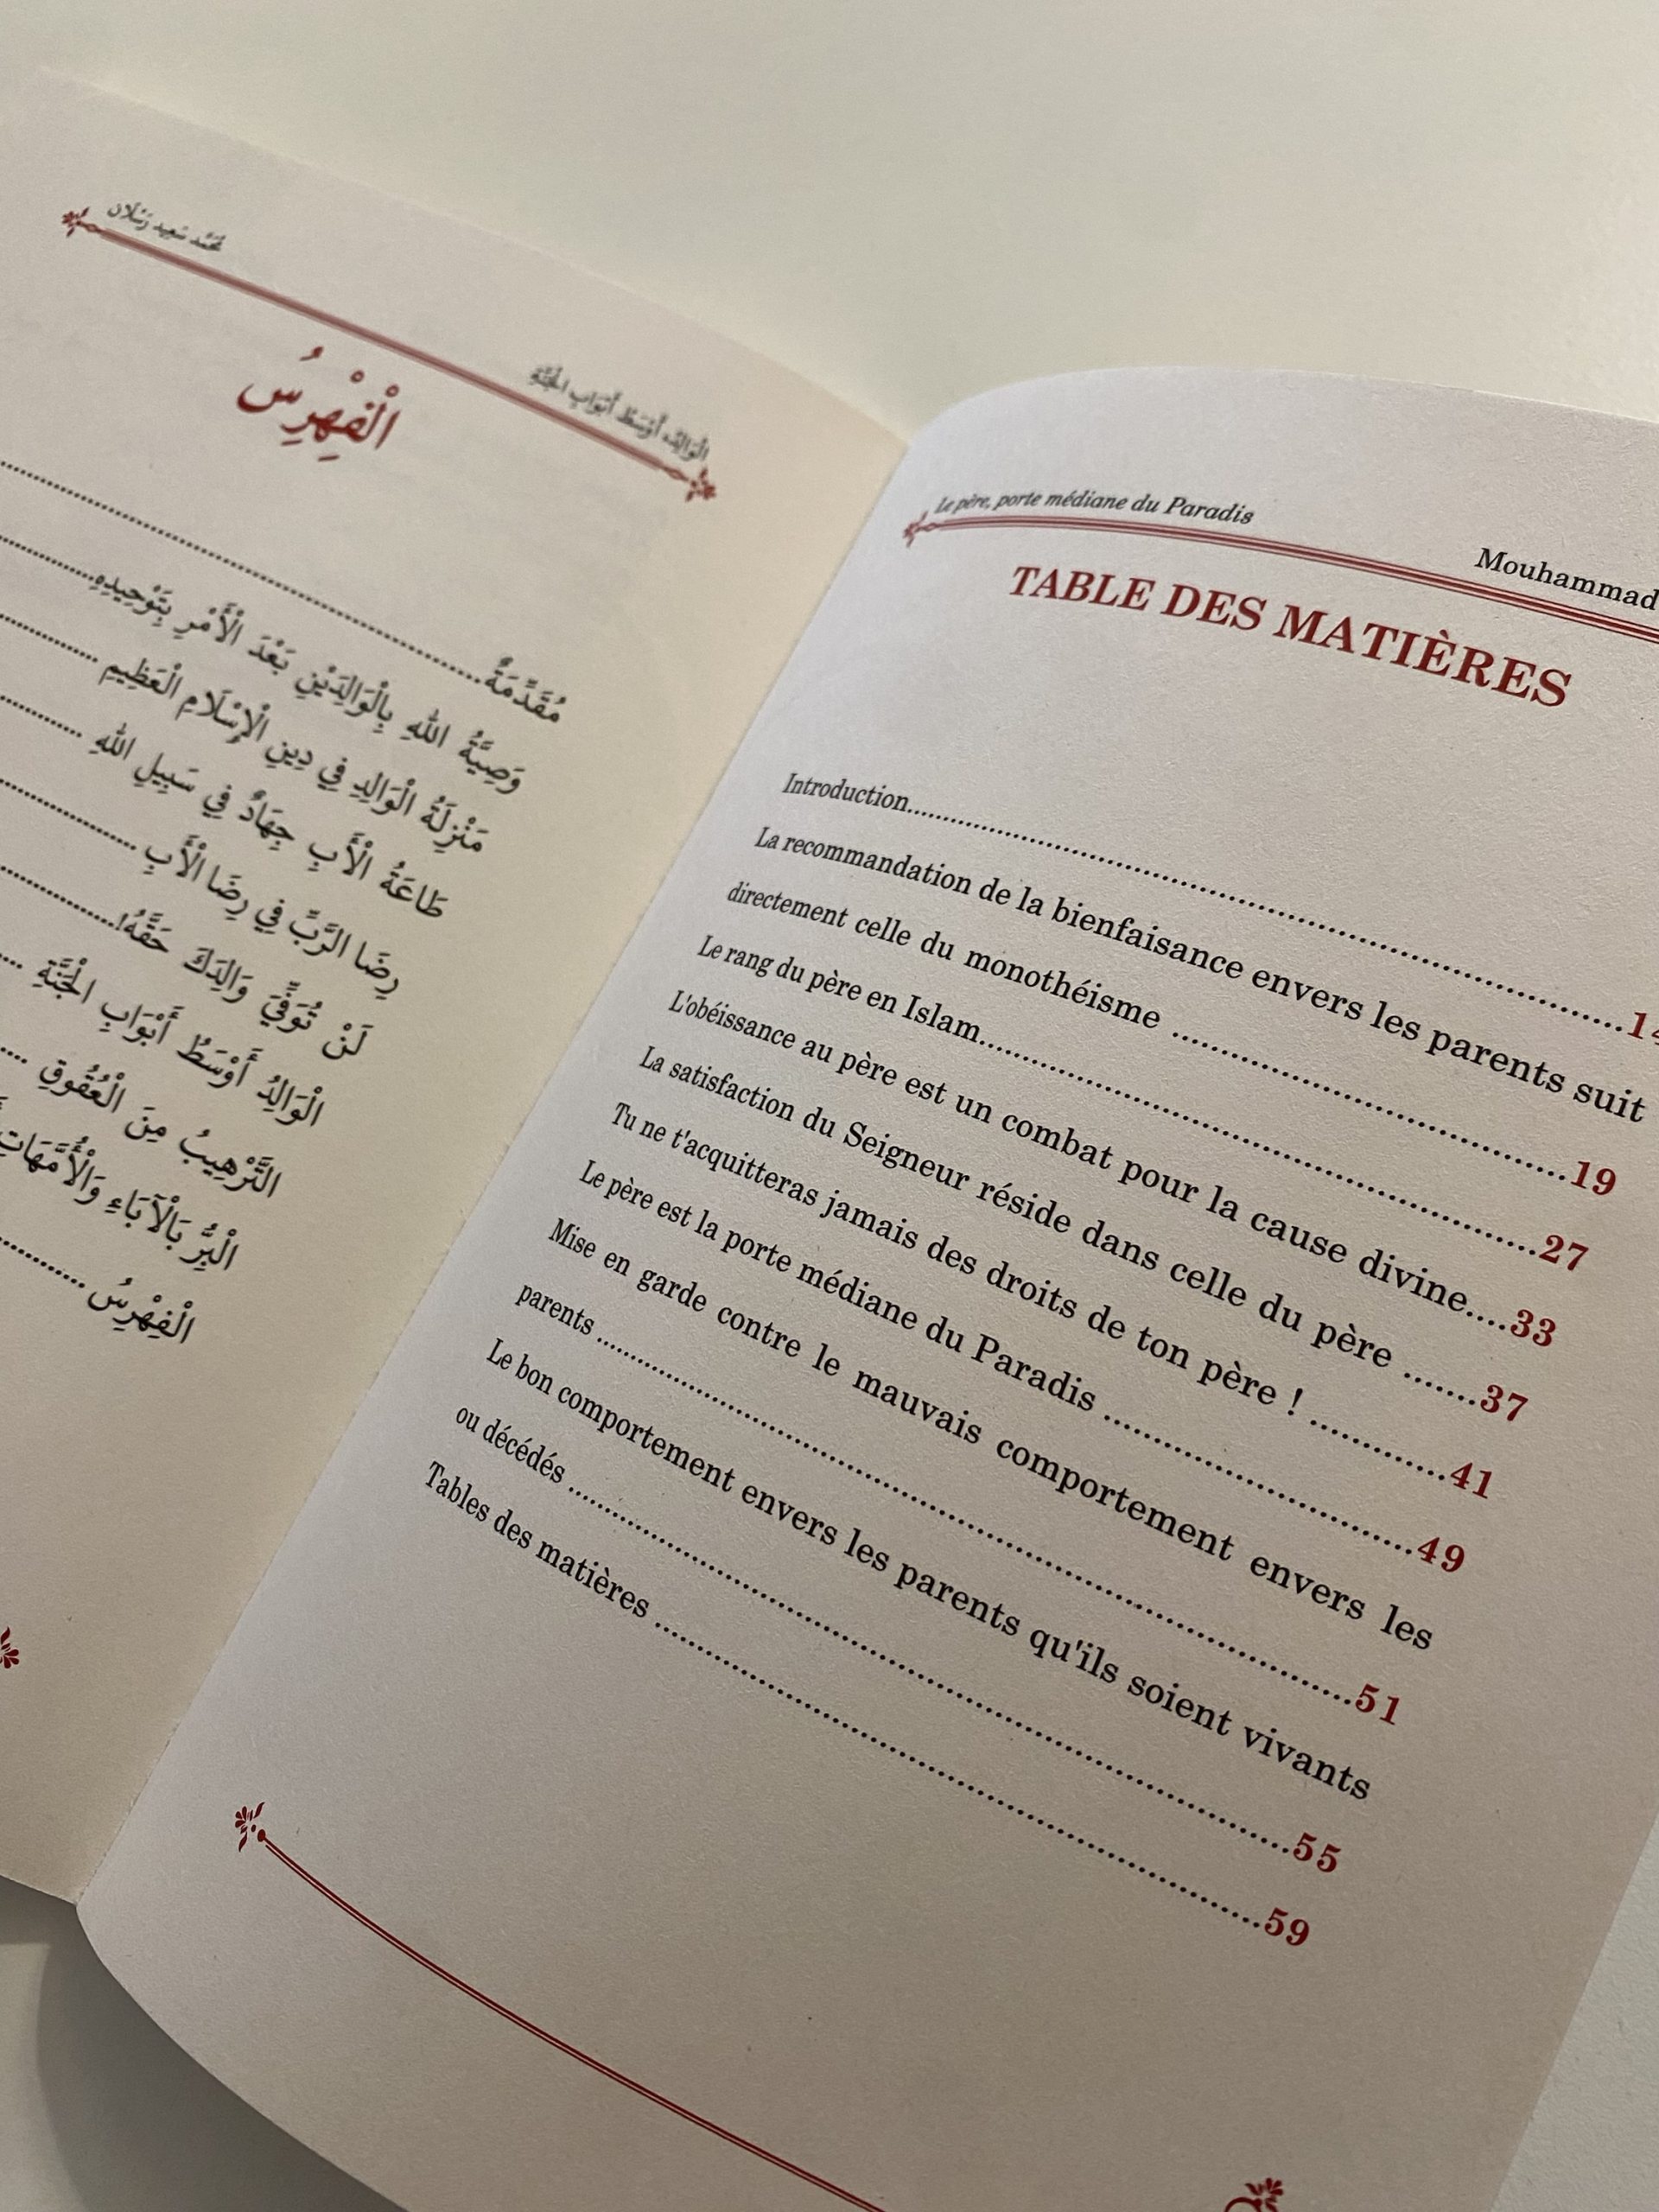 مُحَمَّد سَعِيد رَسْلَان
الْوَالِدُ أَوْسَطُ أَبْوَابِ الْجَنَّةِ
الْفِهْرِسُ
مُقَدِّمَةٌ
وَصِيَّةُ اللهِ بِالْوَالِدَيْنِ بَعْدَ الْأَمْرِ بِتَوْحِيدِهِ
مَنْزِلَةُ الْوَالِدِ فِي دِينِ الْإِسْلَامِ الْعَظِيمِ
طَاعَةُ الْأَبِ جِهَادٌ فِي سَبِيلِ اللهِ
رِضَا الرَّبِّ فِي رِضَا الْأَبِ
لَنْ تُوَفِّيَ وَالِدَكَ حَقَّهُ!
الْوَالِدُ أَوْسَطُ أَبْوَابِ الْجَنَّةِ
التَّرْهِيبُ مِنَ الْعُقُوقِ
الْبِرُّ بِالْآبَاءِ وَالْأُمَّهَاتِ
الْفِهْرِسُ
Le père, porte médiane du Paradis
Mouhammad
TABLE DES MATIÈRES
Introduction..........14
La recommandation de la bienfaisance envers les parents suit
directement celle du monothéisme ..........19
Le rang du père en Islam..........27
L'obéissance au père est un combat pour la cause divine....33
La satisfaction du Seigneur réside dans celle du père .......37
Tu ne t'acquitteras jamais des droits de ton père ! ..........41
Le père est la porte médiane du Paradis ..........49
Mise en garde contre le mauvais comportement envers les
parents ..........51
Le bon comportement envers les parents qu'ils soient vivants
ou décédés ..........55
Tables des matières ..........59